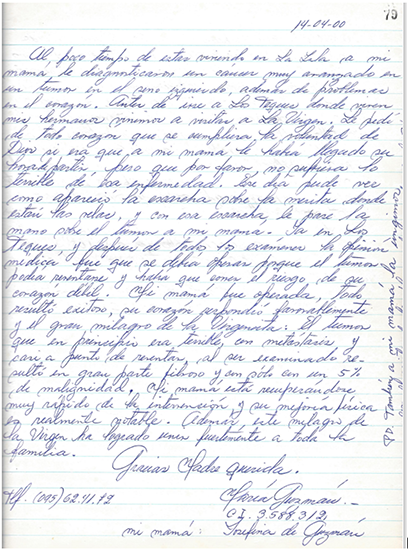 79
14-04-00
Al, poco tiempo de estar viviendo en La Lula, a mi
mamá, le diagnosticaron un cáncer muy avanzado en
un tumor en el seno izquierdo, además de problemas
en el corazón. Antes de irse a Los Teques donde viven
mis hermanos vinimos a visitar a La Virgen. Le pedí
de todo corazón que se cumpliera la voluntad de
Dios si era que, a mi mamá le había llegado su
hora de partir, pero que por favor, no sufriera lo
terrible de esa enfermedad. Ese día pude ver
como apareció la escarcha sobre la mesita donde
están las velas, y con esa escarcha, le pasé la
mano sobre el tumor a mi mamá. Ya en Los
Teques, y después de todos los exámenes la opinión
médica fue que se debía operar porque el tumor
podía reventarse y había que correr el riesgo, de su
corazón débil. Mi mamá fue operada, todo
resultó exitoso, su corazón respondió favorablemente
y el gran milagro de la Virgencita: El tumor
que en principio era terrible, con metástasis y
casi a punto de reventar, al ser examinado re-
sultó en gran parte fibroso y con sólo con un 5%
de malignidad. Mi mamá está recuperándose
muy rápido de la intervención y su mejoría física
es realmente notable. Además, este milagro de
la Virgen ha logrado unir fuertemente a toda la
familia.
Gracias Madre querida.
Tlf. (095) 62.11.72
María Guzmán. -
C.I. 3.588.312
mi mamá: Josefina de Guzmán
PD. También a mi mamá la ungimos